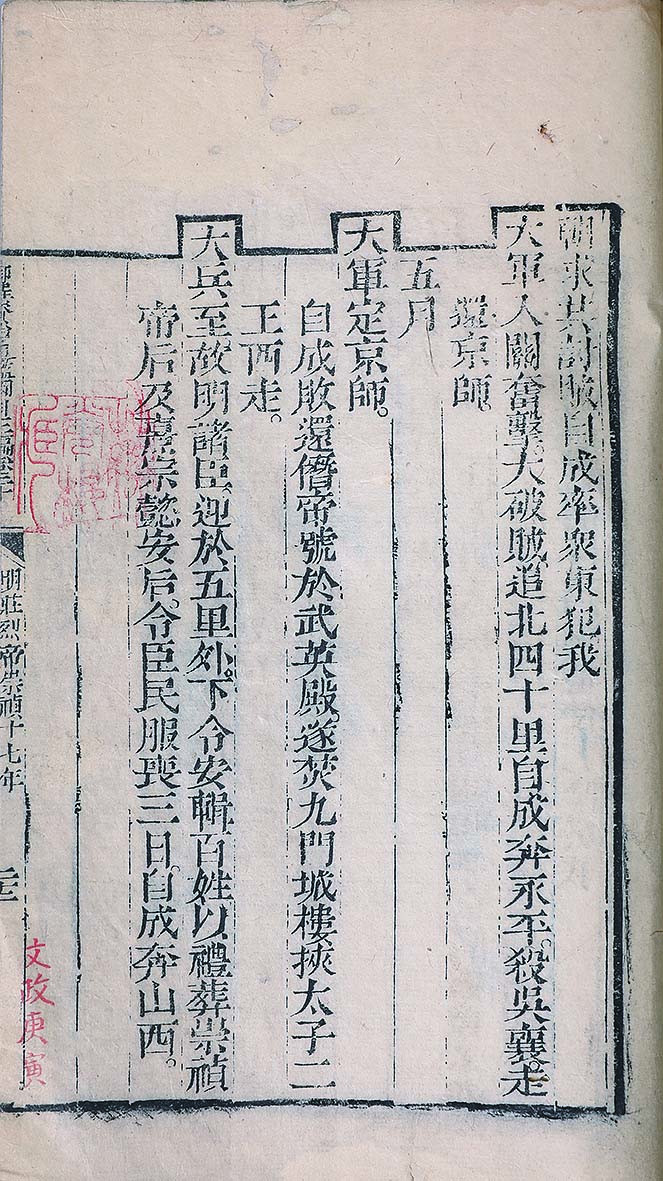 朝求共討賊自成率衆東犯我
大軍入關奮擊。大破賊。追北四十里。自成奔永平。殺吳襄。走
還京師。
五月
大軍定京師。
自成敗還。僭帝號於武英殿。遂焚九門城樓。挾太子二
王西走。
大兵至。故明諸臣。迎於五里外。下令安輯百姓。以禮葬崇禎
帝后及熹宗懿安后。令臣民服喪三日。自成奔山西。
明莊烈帝崇禎十七年
文政庚寅